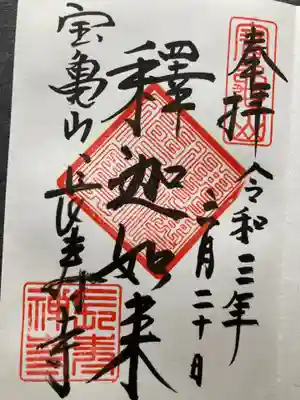 奉拝
令和三年
六月二十日
釋迦如来
宝亀山
長寿寺